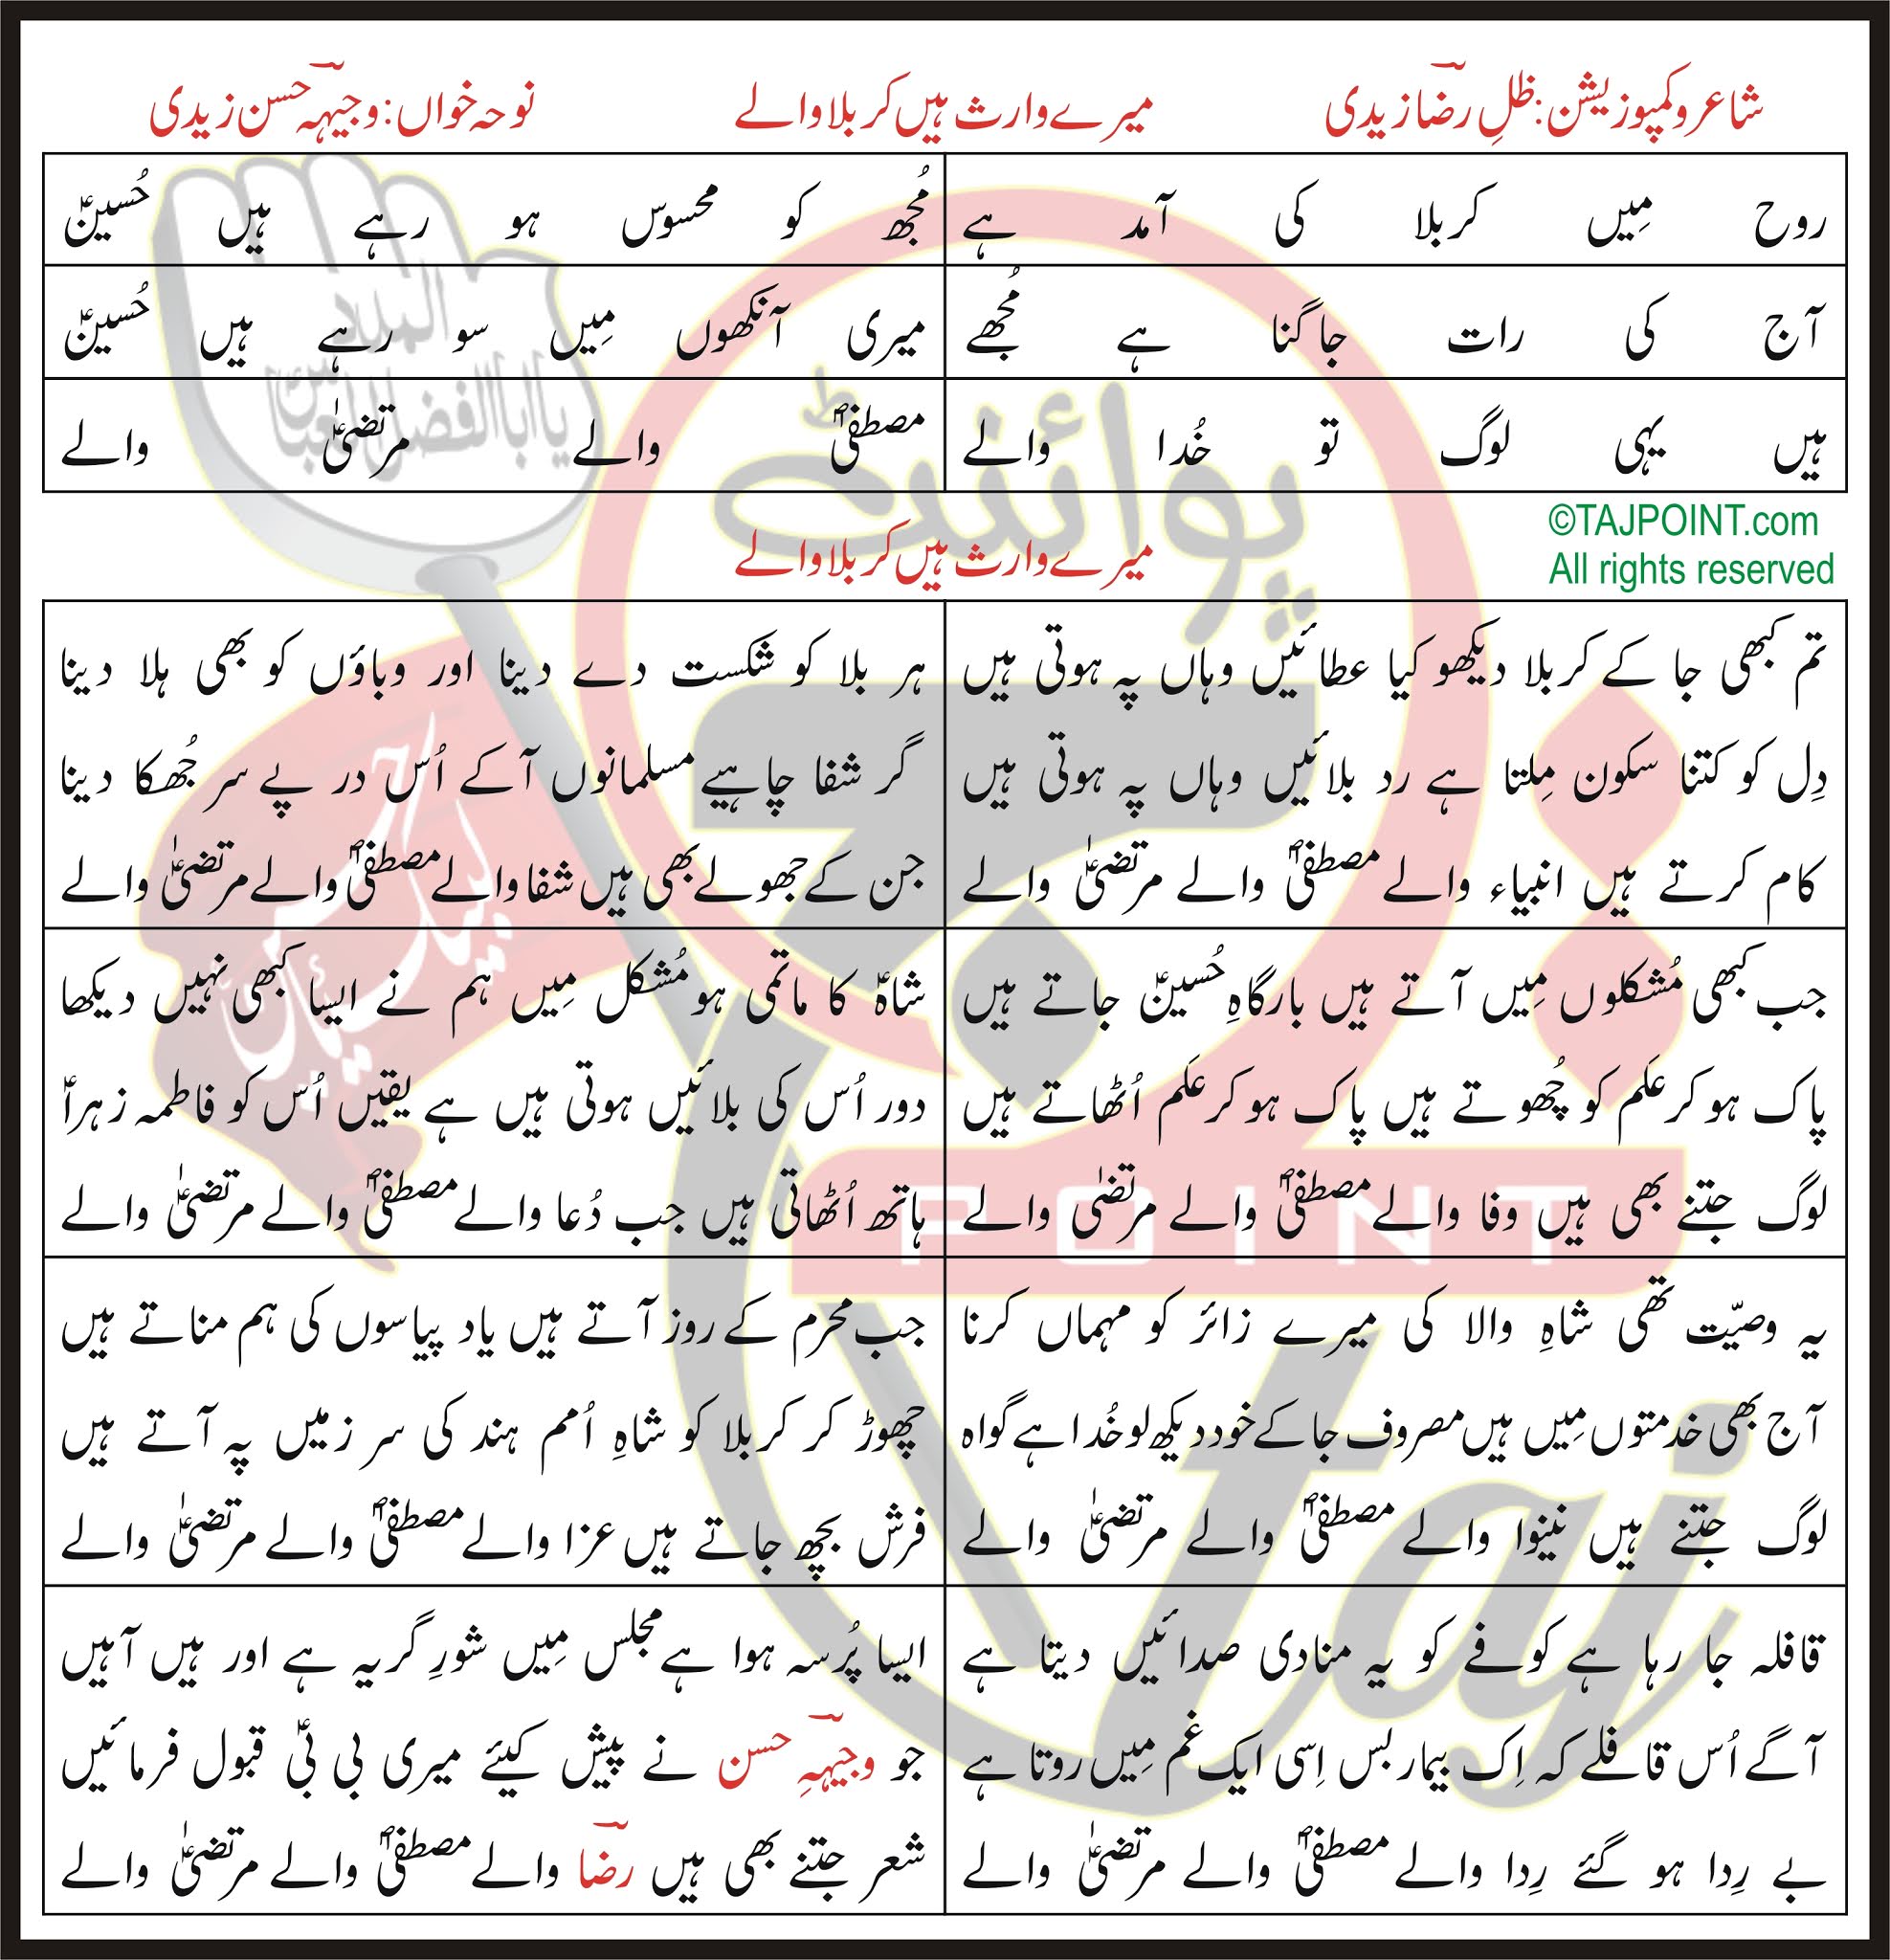 شاعر و کمپوزیشن: ظلِ رضاؔ زیدی
میرے وارث ہیں کربلا والے
نوحہ خواں: وجیہہؔ حسن زیدی
روح مِیں کربلا کی آمد ہے
مُجھ کو محسوس ہو رہے ہیں حُسینؑ
آج کی رات جاگنا ہے مُجھے
میری آنکھوں مِیں سو رہے ہیں حُسینؑ
ہیں یہی لوگ تو خُدا والے
مصطفیٰؐ والے مرتضیٰؑ والے
©TAJPOINT.com
All rights reserved
میرے وارث ہیں کربلا والے
تم کبھی جا کے کربلا دیکھو کیا عطائیں وہاں پہ ہوتی ہیں
دِل کو کتنا سکون مِلتا ہے رد بلائیں وہاں پہ ہوتی ہیں
کام کرتے ہیں انبیاء والے مصطفیٰؐ والے مرتضیٰؑ والے
ہر بلا کو شکست دے دینا اور وباؤں کو بھی ہلا دینا
گر شفا چاہیے مسلمانوں آ کے اُس در پے سر جُھکا دینا
جن کے جھولے بھی ہیں شفا والے مصطفیٰؐ والے مرتضیٰؑ والے
جب کبھی مُشکلوں مِیں آتے ہیں بارگاہِ حُسینؑ جاتے ہیں
پاک ہو کر عَلم کو چُھوتے ہیں پاک ہو کر عَلم اُٹھاتے ہیں
لوگ جتنے بھی ہیں وفا والے مصطفیٰؐ والے مرتضیٰ والے
شاہؑ کا ماتمی ہو مُشکل مِیں ہم نے ایسا کبھی نہیں دیکھا
دور اُس کی بلائیں ہوتی ہیں ہے یقیں اُس کو فاطمہ زہراؑ
ہاتھ اُٹھاتی ہیں جب دُعا والے مصطفیٰؐ والے مرتضیٰؑ والے
یہ وصیّت تھی شاہِ والا کی میرے زائر کو مہماں کرنا
آج بھی خدمتوں مِیں ہیں مصروف جا کے خود دیکھ لو خُدا ہے گواہ
لوگ جتنے ہیں نینوا والے مصطفیٰؐ والے مرتضیٰؑ والے
جب محرم کے روز آتے ہیں یاد پیاسوں کی ہم مناتے ہیں
چھوڑ کر کربلا کو شاہِ اُمم ہند کی سر زمیں پہ آتے ہیں
فرش بچھ جاتے ہیں عزا والے مصطفیٰؐ والے مرتضیٰؑ والے
قافلہ جا رہا ہے کوفے کو یہ منادی صدائیں دیتا ہے
آگے اُس قافلے کہ اِک بیمار بس اِسی ایک غم مِیں روتا ہے
بے رِدا ہو گئے رِدا والے مصطفیٰؐ والے مرتضیٰؑ والے
ایسا پُرسہ ہوا ہے مجلس مِیں شورِ گریہ ہے اور ہیں آہیں
جو وجیہہِؔ حسن نے پیش کیئے میری بی بیؑ قبول فرمائیں
شعر جتنے بھی ہیں رضاؔ والے مصطفیٰؐ والے مرتضیٰؑ والے
پوائنٹ
تاج
POINT
Taj